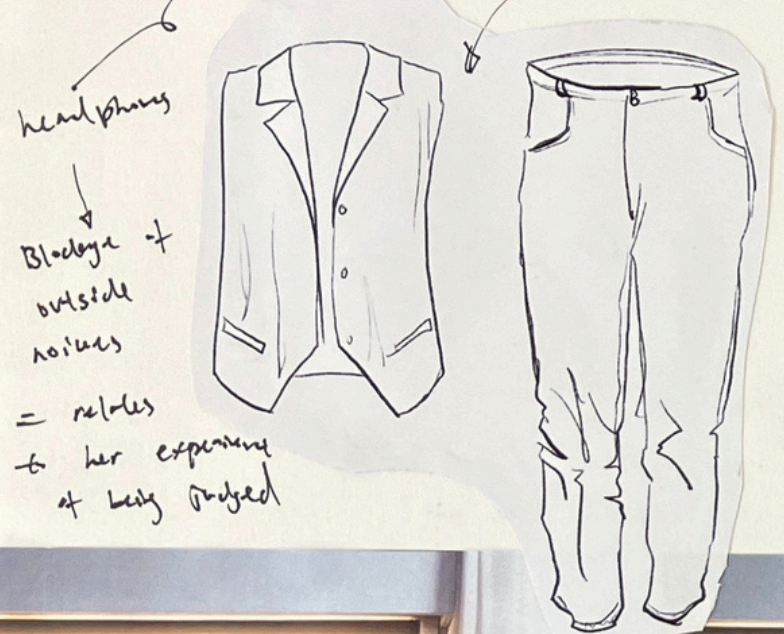 headphones
Blockage of
outside
noises
= relates
to her experience
of being judged